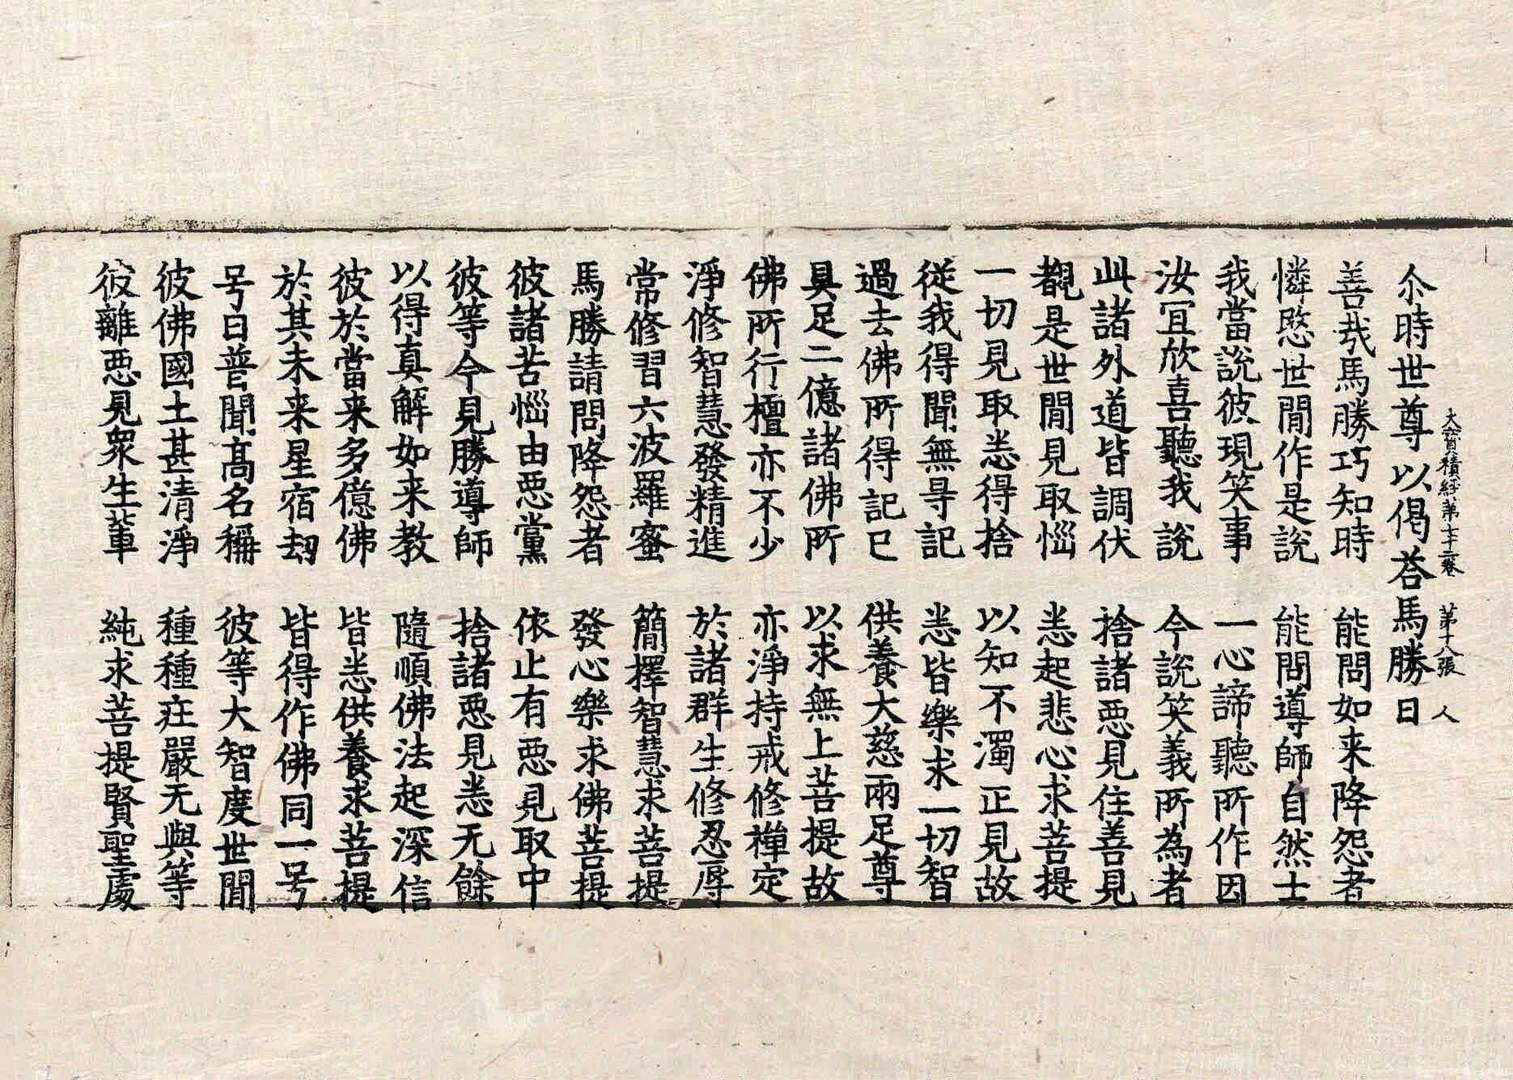 大寶積經第七十三卷 第十八張 人
尒時世尊以偈荅馬勝曰
善㢤馬勝巧知時 能問如来降怨者
憐愍世間作是說 能問導師自然士
我當說彼現笑事 一心諦聽所作因
汝冝欣喜聽我說 今說笑義所為者
此諸外道皆調伏 捨諸惡見住善見
覩是世間見取惱 悉起悲心求菩提
一切見取悉得捨 以知不濁正見故
従我得聞無㝵記 悉皆樂求一切智
過去佛所得記已 供養大慈兩足尊
具足二億諸佛所 以求無上菩提故
佛所行檀亦不少 亦淨持戒修禅定
淨修智慧發精進 於諸群生修忍辱
常修習六波羅蜜 簡擇智慧求菩提
馬勝請問降怨者 發心樂求佛菩提
彼諸苦惱由惡黨 依止有惡見取中
彼等今見勝導師 捨諸惡見悉无餘
以得真解如来教 隨順佛法起深信
彼於當来多億佛 皆悉供養求菩提
於其未来星宿劫 皆得作佛同一号
号曰普聞高名稱 彼等大智度世間
彼佛國土甚清淨 種種荘嚴无與等
彼離惡見衆生輩 純求菩提賢聖處